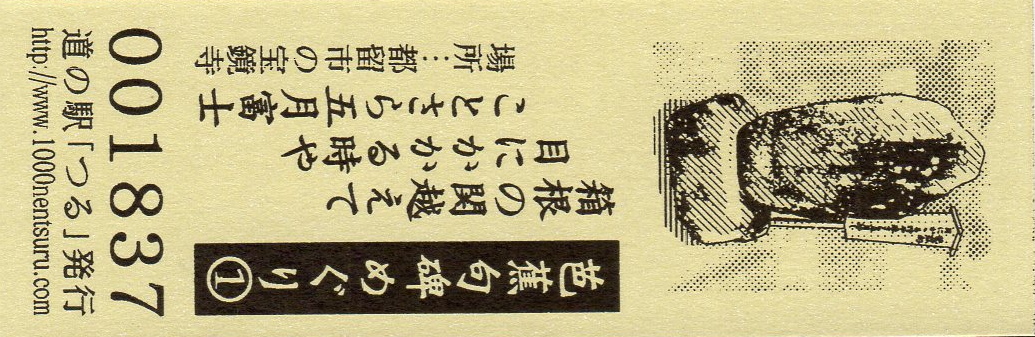 芭蕉句碑めぐり①
箱根の関越えて
目にかかる時や
ことさら五月富士
場所:都留市の宝鏡寺
001837
道の駅「つる」発行
http://www.1000nentsuru.com